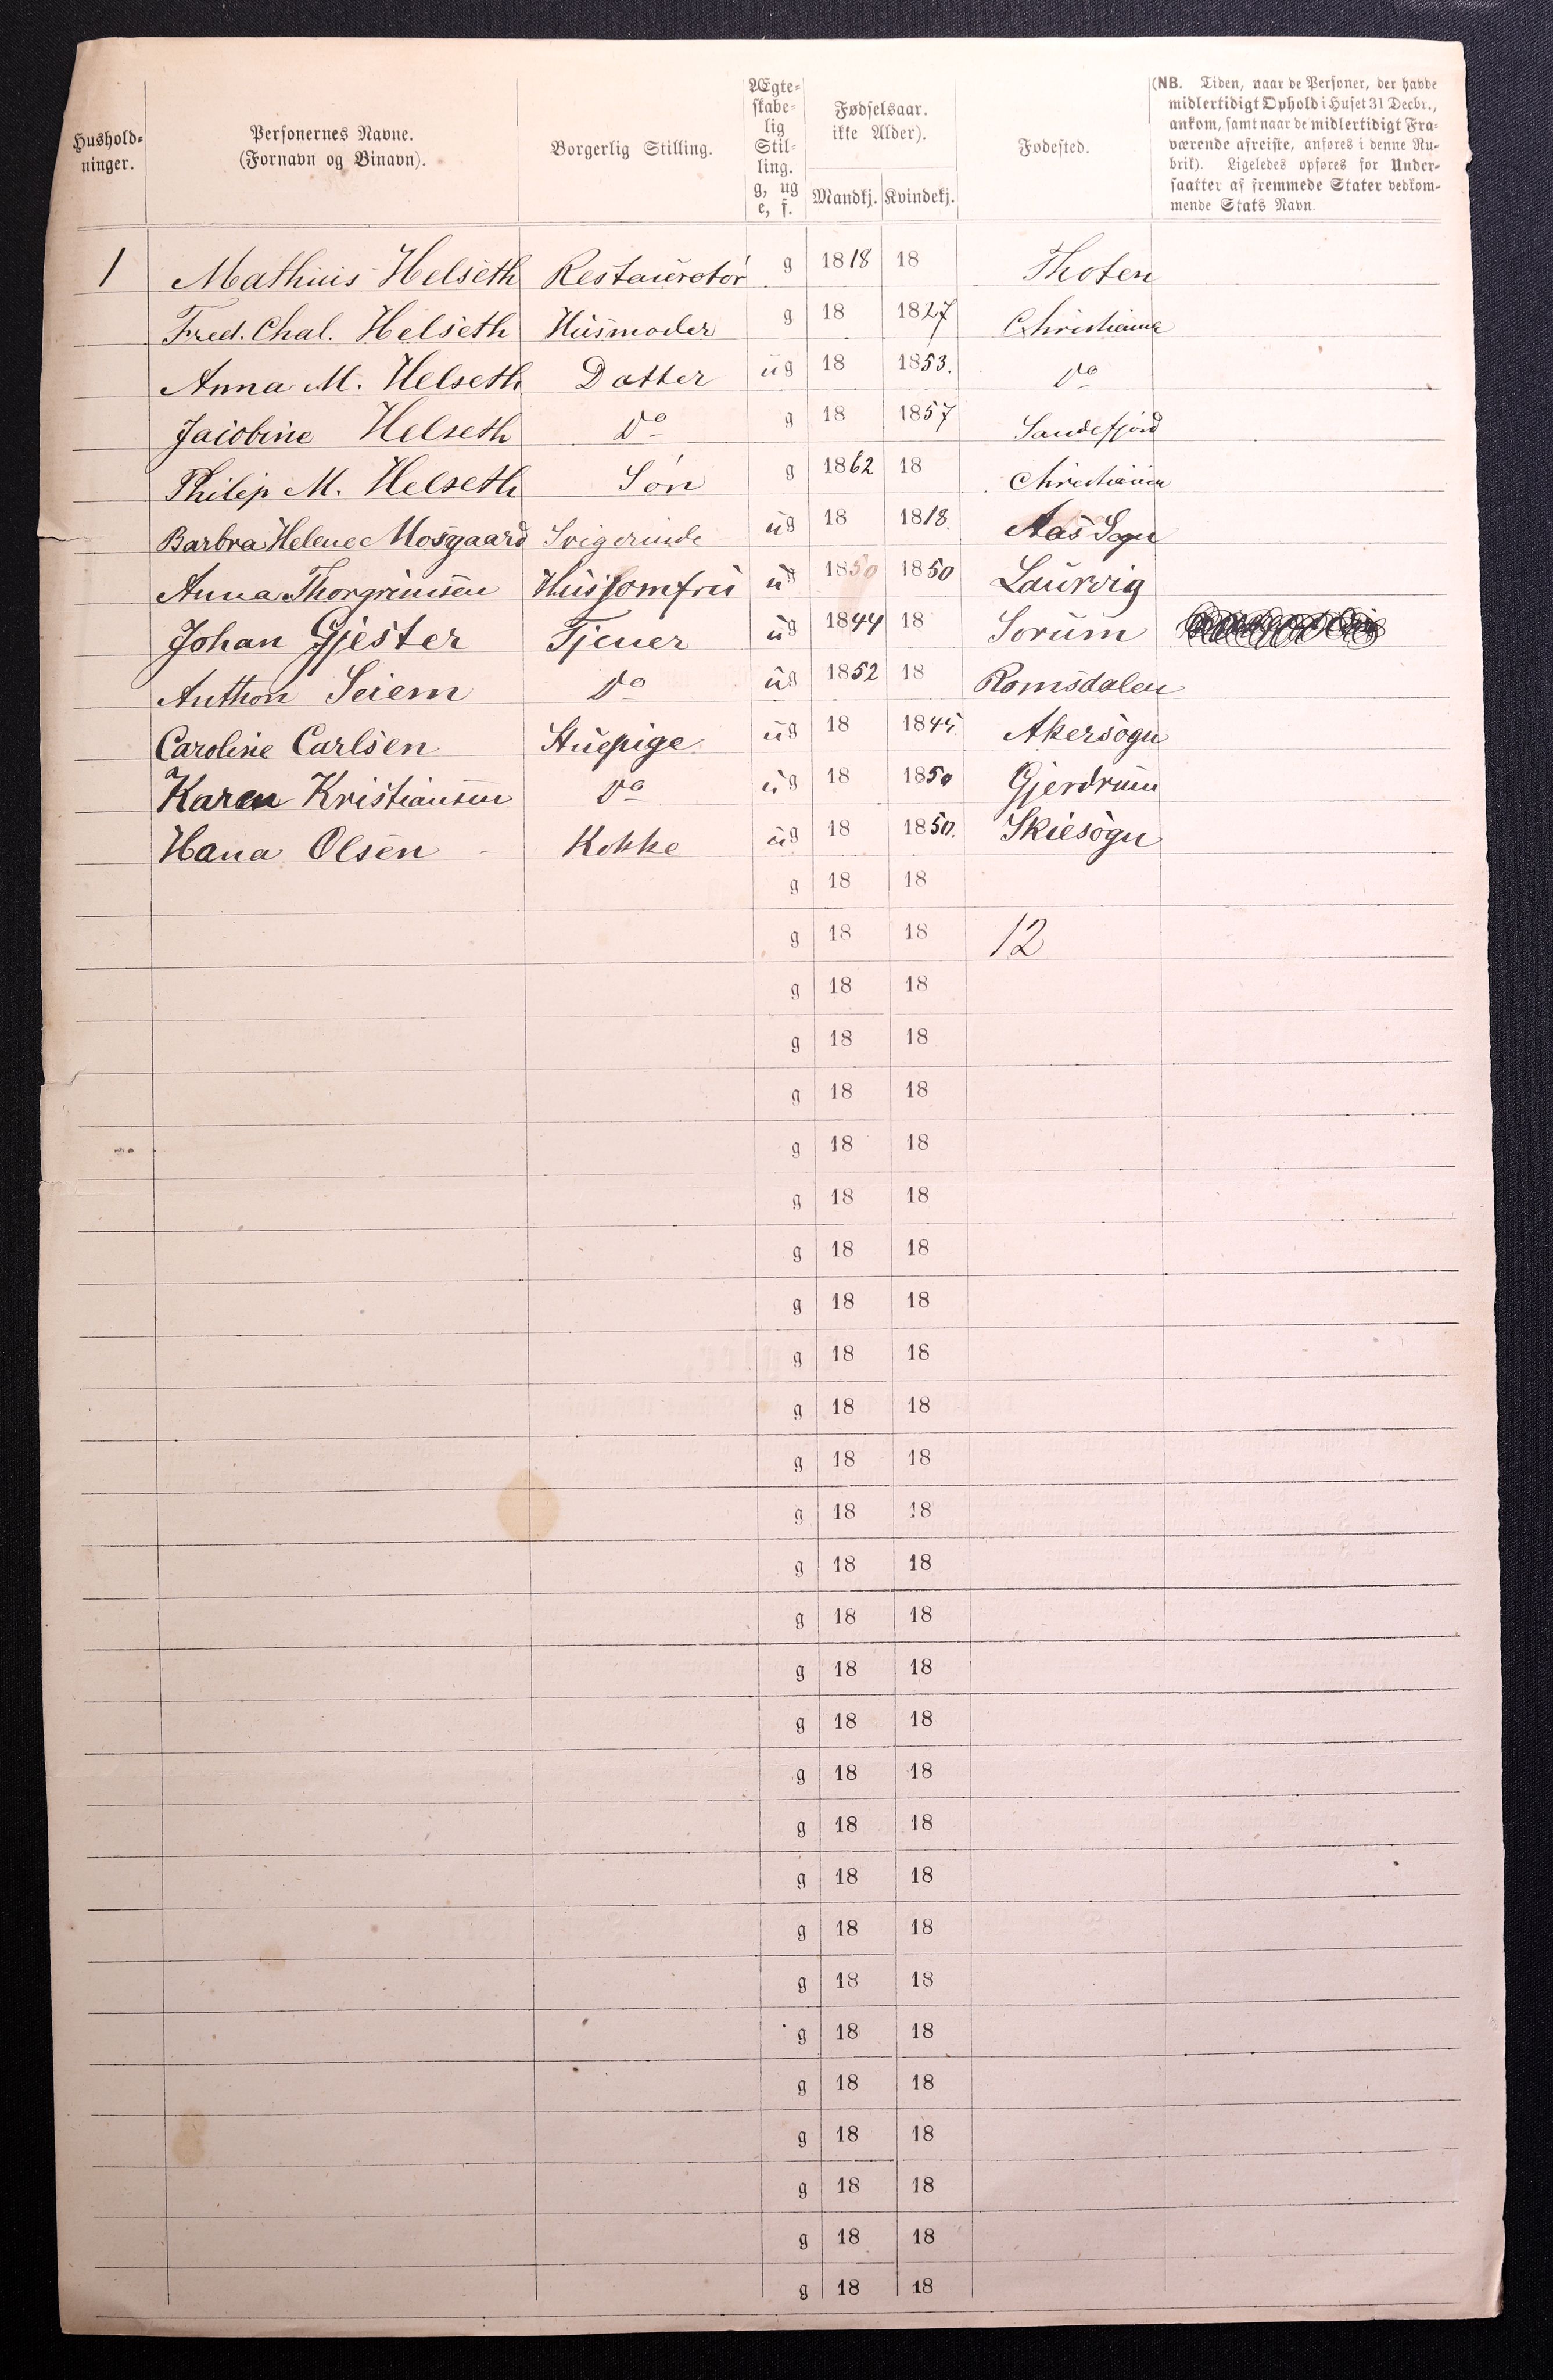 Hushold-
ninger.
Personernes Navne.
(Fornavn og Binavn).
Borgerlig Stilling.
Ægte-
skabe-
lig
Stil-
ling.
g, ug
e, f.
Fødselsaar.
ikke Alder).
Mandkj. Kvindekj.
Fødested.
(NB. Tiden, naar de Personer, der havde
midlertidigt Ophold i Huset 31 Decbr.,
ankom, samt naar de midlertidigt Fra-
værende afreiste, anføres i denne Ru-
brik). Ligeledes opføres for Under-
saatter af fremmede Stater vedkom-
mende Stats Navn.
1 Mathius Helseth Restauratør g 1818 18 Thoten
Fred. Chal. Helseth Husmoder g 18 1827 Christiania
Anna M. Helseth Datter ug 18 1853. Do
Jacobine Helseth Do g 18 1857 Sandefjord
Philip M. Helseth Søn g 1862 18 Christiania
Barbra Helene Mosgaard Svigerinde ug 18 1818. Aas Sogn
Anna Thorgrimsen Husjomfru ug 1850 1850 Laurvig
Johan Gjester Tjener ug 1844 18 Sorum
Anthon Seiem Do ug 1852 18 Romsdalen
Caroline Carlsen Stuepige ug 18 1845. Akersogn
Karen Kristiansen Do ug 18 1850 Gjerdrum
Hana Olsen Kokke ug 18 1850. Skiesogn
g 18 18
g 18 18 12
g 18 18
g 18 18
g 18 18
g 18 18
g 18 18
g 18 18
g 18 18
g 18 18
g 18 18
g 18 18
g 18 18
g 18 18
g 18 18
g 18 18
g 18 18
g 18 18
g 18 18
g 18 18
g 18 18
g 18 18
g 18 18
g 18 18
g 18 18
g 18 18
g 18 18
g 18 18